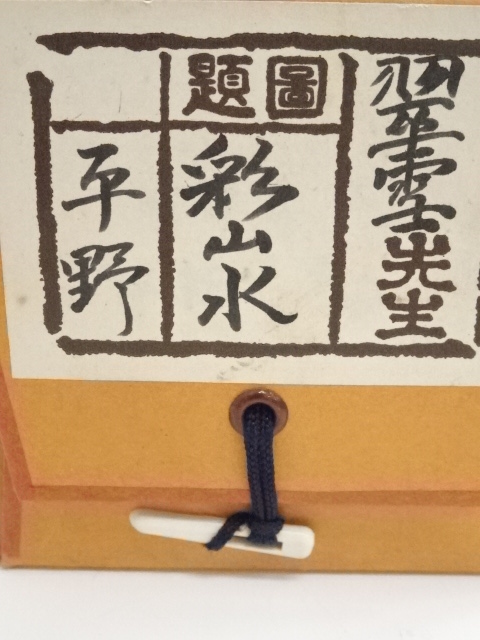 翠雲先生
圖題
彩山水
平野